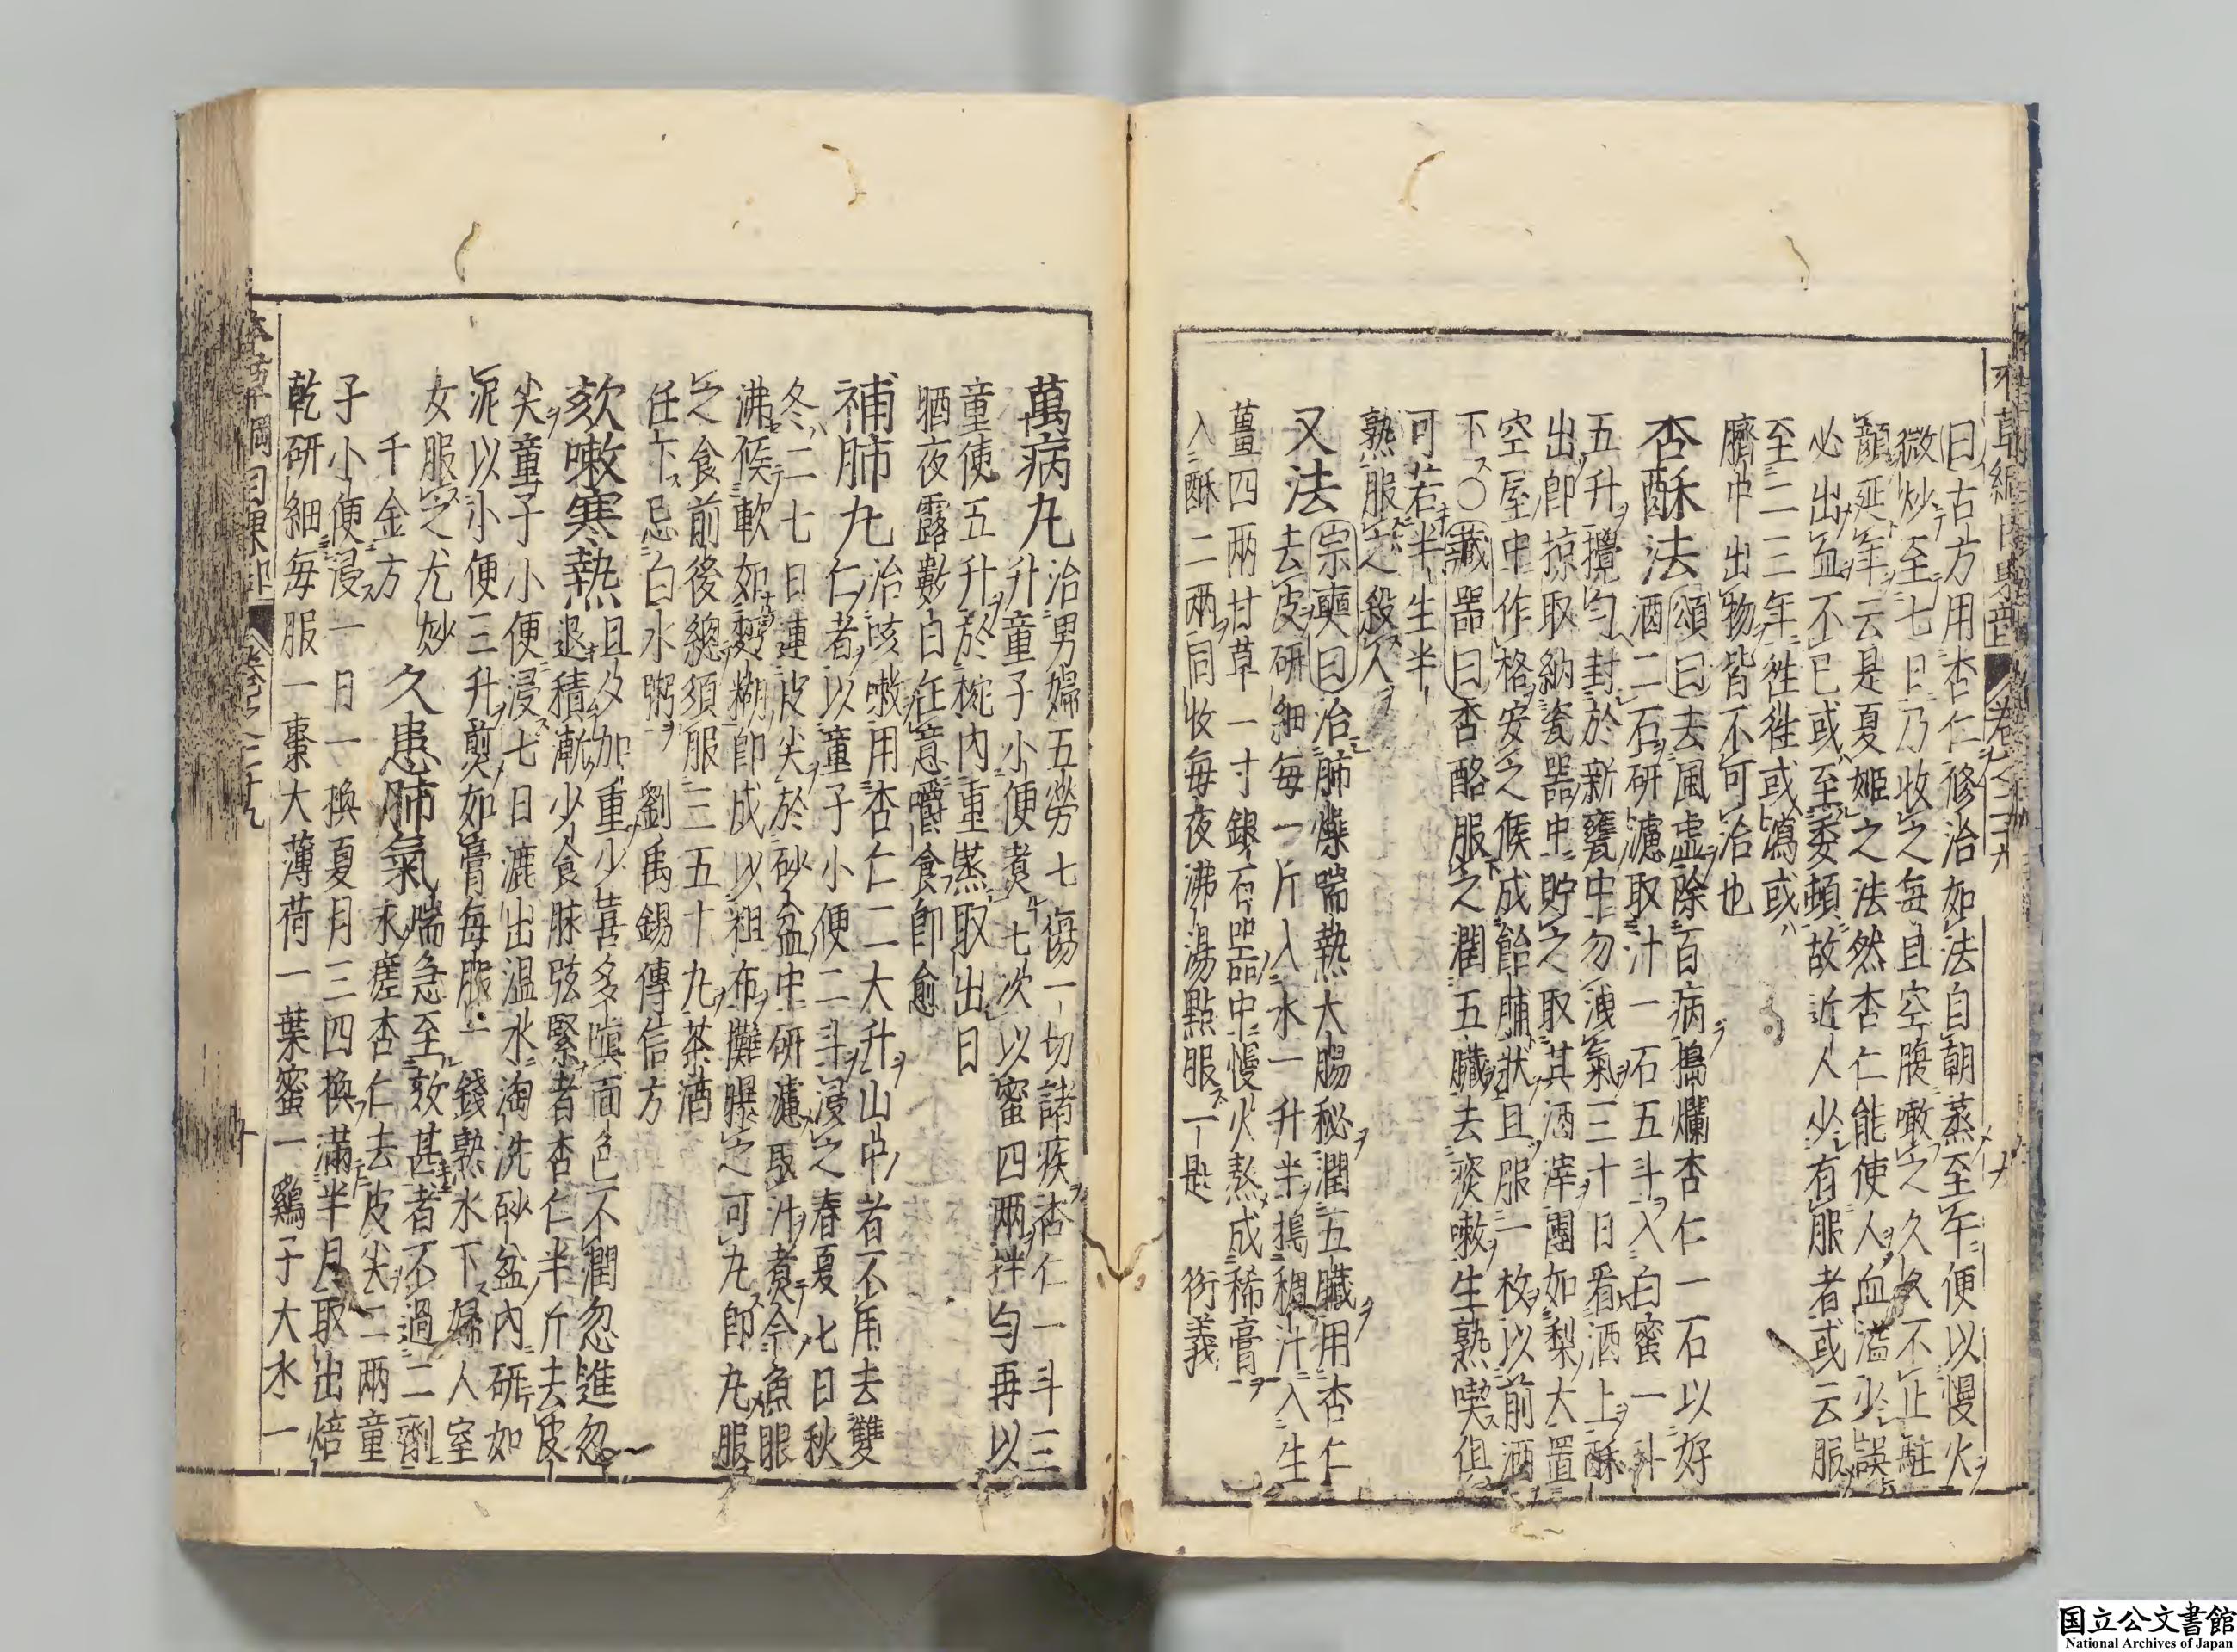 曰古方用杏仁修治如法自朝蒸至午便以慢火
微炒至七日乃收之每旦空腹啖之久久不止駐
顏延年云是夏姬之法然杏仁能使人血溢少誤
必出血不已或至委頓故近人少有服者或云服
至二三年徃徃或瀉或
臍中出物皆不可治也
杏酥法 頌曰去風虛除百病搗爛杏仁一石以好
酒二石研濾取汁一石五斗入白蜜一斗
五升攪勻封於新甕中勿洩氣三十日看酒上酥
出卽掠取納瓷器中貯之取其酒滓團如梨大置
空屋中作格安之候成飴脯狀旦服一枚以前酒
下○藏器曰杏酪服之潤五臟去痰嗽生熟喫俱
可若半生半
熟服之殺人
又法 宗奭曰治肺燥喘熱大腸秘潤五臟用杏仁
去皮研細每一斤入水一升半搗稠汁入生
薑四兩甘草一寸銀石器中慢火熬成稀膏
入酥二兩同收每夜沸湯點服一匙 衍義
萬病丸 治男婦五勞七傷一切諸疾杏仁一斗三
升童子小便煮七次以蜜四兩拌勻再以
童便五升於椀内重蒸取出日
晒夜露數日任意嚼食卽愈
補肺丸 治咳嗽用杏仁二大升山中者不用去雙
仁者以童子小便二斗浸之春夏七日秋
冬二七日連皮尖於砂盆中研濾取汁煮令魚眼
沸候軟如麪糊卽成以祖布攤曝之可丸卽丸服
之食前後總須服三五十丸茶酒
任下忌白水粥 劉禹錫傳信方
欬嗽寒熱 旦夕加重少喜多嗔面色不潤忽進忽
退積漸少食脉弦緊者杏仁半斤去皮
尖童子小便浸七日漉出温水淘洗砂盆内研如
泥以小便三升煎如膏每服一錢熟水下婦人室
女服之尤妙
千金方 久患肺氣 喘急至欬甚者不過二劑
永瘥杏仁去皮尖二兩童
子小便浸一日一換夏月三四換滿半月取出焙
乾研細每服一棗大薄荷一葉蜜一鷄子大水一
国立公文書館
National Archives of Japan